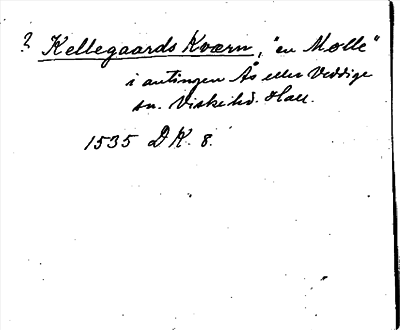 ? Kellegaards Kværn, "en Mølle"
i antingen Ås eller Veddige
sn. Viske hd. Hall.
1535 DK. 8.